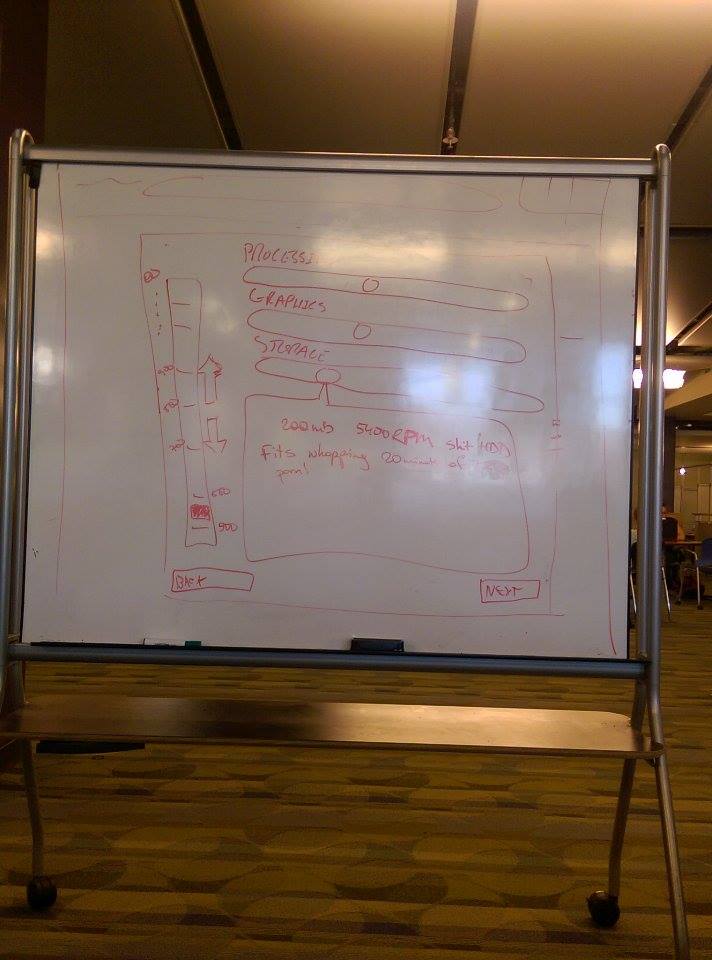 PROCESSI
GRAPHICS
STORAGE
200mb 5400RPM shit (HDD)
Fits whopping 20 minutes of
porn!
600
500
BACK
NEXT